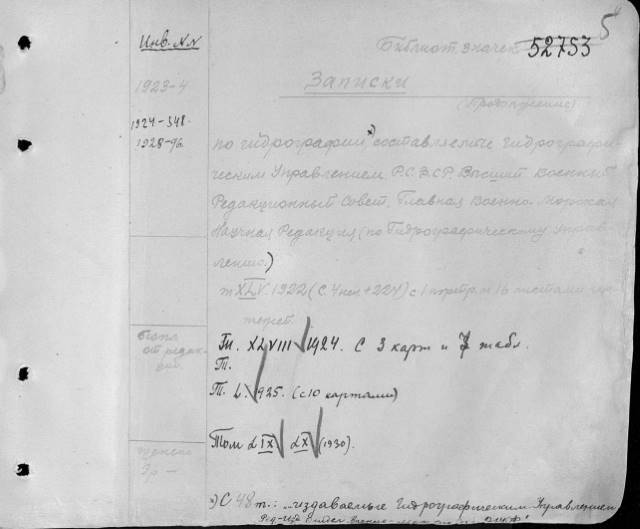 5
Инв. NN
Библиот. значек 52753
1923-4
Записки
(Продолжение)
1924-348
1928-96
по гидрографии*) составляемые Гидрографи-
ческим Управлением Р.С.Ф.С.Р. Высший Военный
Редакционный Совет, Главная Военно-Морская
Научная Редакция (по Гидрографическому Управ-
лению.)
т XLV. 1922 (С. 4 нен. + 224) с 1 портр. и 16 листами
XLVIII 1924. С 3 карт и 7 табл.
Т.
Т. L. 1925. (с 10 картами)
Том LIX LX (1930).
*) С 48 т.: "издаваемые Гидрографическим Управлением